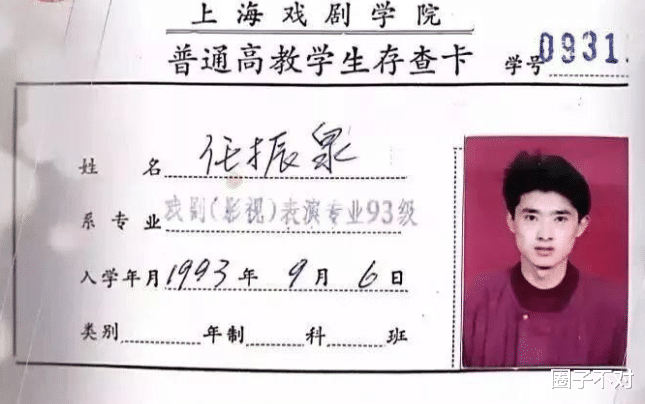 上海戏剧学院
普通高教学生存查卡 学号0931
姓 名 任振泉
系专业 戏剧(影视)表演专业93级
入学年月1993年9月6日
类别 年制 科 班
圈子不对